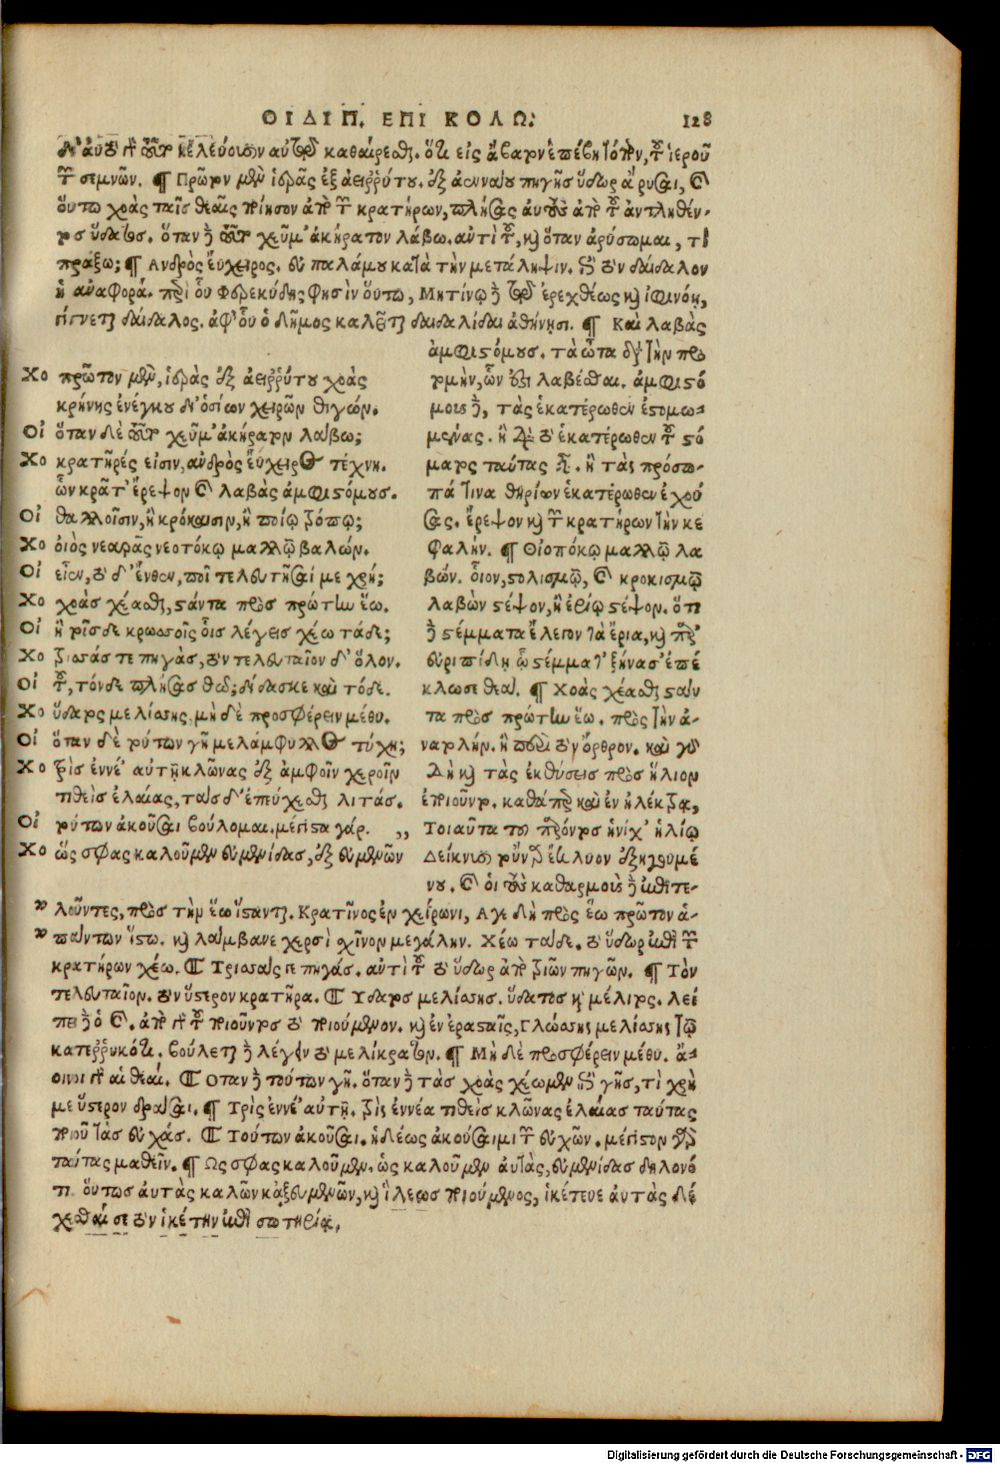 ΟΙΔΙΠ. ΕΠΙ ΚΟΛΩ.
128
καθαίρεσθαι. ὅτι εἰς ἄβατον ἐπέβη τόπον, τοῦ ἱεροῦ
τῶν σεμνῶν. ¶ Πρῶτον μὲν ἱερᾶς ἐξ ἀειῤῥύτου. ἐξ ἀεννάου πηγῆς ὕδωρ ἀρῦσαι, καὶ
οὕτω χοὰς ταῖς θεαῖς ποίησον ἀπὸ τῶν κρατήρων, πλήσας αὐτοὺς ἀπὸ τοῦ ἀντληθέν-
τος ὕδατος. ὅταν δὲ τοῦτο χεῦμ' ἀκήρατον λάβω. αὐτὶ τοῦ, καὶ ὅταν ἀρύσωμαι, τί
πράξω; ¶ Ανδρὸς εὔχειρος. εὐπαλάμου κατὰ τὴν μετάληψιν. πρὸς τὸν δαίδαλον
ἡ ἀναφορά. περὶ οὗ Φερεκύδης φησὶν οὕτω, Μητίονι δὲ τῷ ἐρεχθέως καὶ ἰφινόης,
γίγνεται δαίδαλος. ἀφ' οὗ ὁ δῆμος καλεῖται δαιδαλίδαι ἀθήνησι. ¶ Καὶ λαβὰς
ἀμφιστόμους. τὰ ὦτα
Χο πρῶτον μὲν, ἱερὰς ἐξ ἀειῤῥύτου χοὰς
κρήνης ἐνέγκου δι' ὁσίων χειρῶν θιγών.
Οἰ ὅταν δὲ τοῦτο χεῦμ' ἀκήρατον λάβω;
Χο κρατῆρές εἰσιν, ἀνδρὸς εὔχειρος τέχνη.
ὧν κρᾶτ' ἔρεψον καὶ λαβὰς ἀμφιστόμους.
Οἰ θαλλοῖσιν, ἢ κρόκαισιν, ἢ ποίῳ τρόπῳ;
Χο οἰὸς νεαρᾶς νεοτόκῳ μαλλῷ βαλών.
Οἰ εἶεν, τὸ δ' ἔνθεν, ποῖ τελευτῆσαί με χρή;
Χο χοὰς χέασθαι, στάντα πρὸς πρώτην ἕω.
Οἰ ἦ τοῖσδε κρωσσοῖς οἷς λέγεις χέω τάδε;
Χο τρισσάς τε πηγὰς, τὸν τελευταῖον δ' ὅλον.
Οἰ τοῦ, τόνδε πλήσας θῶ; δίδασκε καὶ τόδε.
Χο ὕδατος μελίσσης, μὴ δὲ προσφέρειν μέθυ.
Οἰ ὅταν δὲ τούτων γῆ μελάμφυλλος τύχῃ;
Χο τρὶς ἐννέ' αὐτῇ κλῶνας ἐξ ἀμφοῖν χεροῖν
τιθεὶς ἐλαίας, τάσδ' ἐπεύχεσθαι λιτάς.
Οἰ τούτων ἀκοῦσαι βούλομαι. μέγιστα γάρ.
Χο ὥς σφας καλοῦμεν εὐμενίδας, ἐξ εὐμενῶν
ὧν ἐπιλαβέσθαι. ἀμφιστό
μοις δὲ, τὰς ἑκατέρωθεν ἐστομω-
μένας. ἢ διὰ τὸ ἑκατέρωθεν τοῦ στό
ματος ταύτας εἶναι. ἢ τὰς πρόσω-
πά τινα θηρίων ἑκατέρωθεν ἐχού
σας. ἔρεψον καὶ τῶν κρατήρων τὴν κε
φαλήν. ¶ Οἰοπόκῳ μαλλῷ λα
βών. οἷον, στολισμῷ, καὶ κροκισμῷ
λαβὼν στέψον, ἢ ἐρίῳ στέψον. ὅτι
δὲ στέμματα ἔλεγον τὰ ἔρια, καὶ παρ'
εὐριπίδῃ ᾧ στέμματ' ξήνασ' ἐπέ
κλωσε θεά. ¶ Χοὰς χέασθαι στάν
τα πρὸς πρώτην ἕω. πρὸς τὴν ἀ-
νατολήν. ἢ πρωῒ τὸν ὄρθρον. καὶ γὰρ
δὴ καὶ τὰς ἐκθύσεις πρὸς ἥλιον
ἐποιοῦντο. καθάπερ καὶ ἐν ἠλέκτρᾳ,
Τοιαῦτα του παρόντος ἡνίχ' ἡλίῳ
Δείκνυσι τοὔναρ ἔκλυον ἐξηγουμέ
νου. καὶ οἱ τοὺς καθαρμοὺς δὲ ἐπιτε-
λοῦντες, πρὸς τὴν ἕω ἵστανται. Κρατῖνος ἐν χείρωνι, Αγε δὴ πρὸς ἕω πρῶτον ἁ-
πάντων ἵστω. καὶ λάμβανε χερσὶ σχῖνον μεγάλην. Χέω τάδε. τὸ ὕδωρ ἐπὶ τῶν
κρατήρων χέω. ¶ Τρισσάς γε πηγάς. αὐτὶ τοῦ τὸ ὕδωρ ἀπὸ τριῶν πηγῶν. ¶ Τὸν
τελευταῖον. τὸν ὕστερον κρατῆρα. ¶ Υδατος μελίσσης. ὕδατος καὶ μέλιτος. λεί
πει δὲ ὁ καὶ. ἀπὸ τοῦ ποιοῦντος τὸ ποιούμενον. καὶ ἐν ἐρασταῖς, γλώσσης μελίσσης τῷ
κατεῤῥυηκότι. βούλεται δὲ λέγειν τὸ μελίκρατον. ¶ Μὴ δὲ προσφέρειν μέθυ. ἄ-
οινοι γὰρ αἱ θεαί. ¶ Οταν δὲ τούτων γῆ. ὅταν δὲ τὰς χοὰς χέωμεν πρὸς γῆς, τί χρή
με ὕστερον δρᾶσαι. ¶ Τρὶς ἐννέ' αὐτῇ. τρὶς ἐννέα τιθεὶς κλῶνας ἐλαίας ταύτας
ποιοῦ τὰς εὐχάς. ¶ Τούτων ἀκοῦσαι. ἡδέως ἀκούσαιμι τῶν εὐχῶν. μέγιστον γὰρ
ταύτας μαθεῖν. ¶ Ως σφας καλοῦμεν. ὡς καλοῦμεν αὐτὰς, εὐμενίδας δηλονό
τι. οὕτως αὐτὰς καλῶν καὶ ἐξ εὐμενῶν, καὶ ἵλεως ποιούμενος, ἱκέτευε αὐτὰς δέ
χεσθαί σε τὸν ἱκέτην ἐπὶ σωτηρίᾳ.
Digitalisierung gefördert durch die Deutsche Forschungsgemeinschaft - DFG